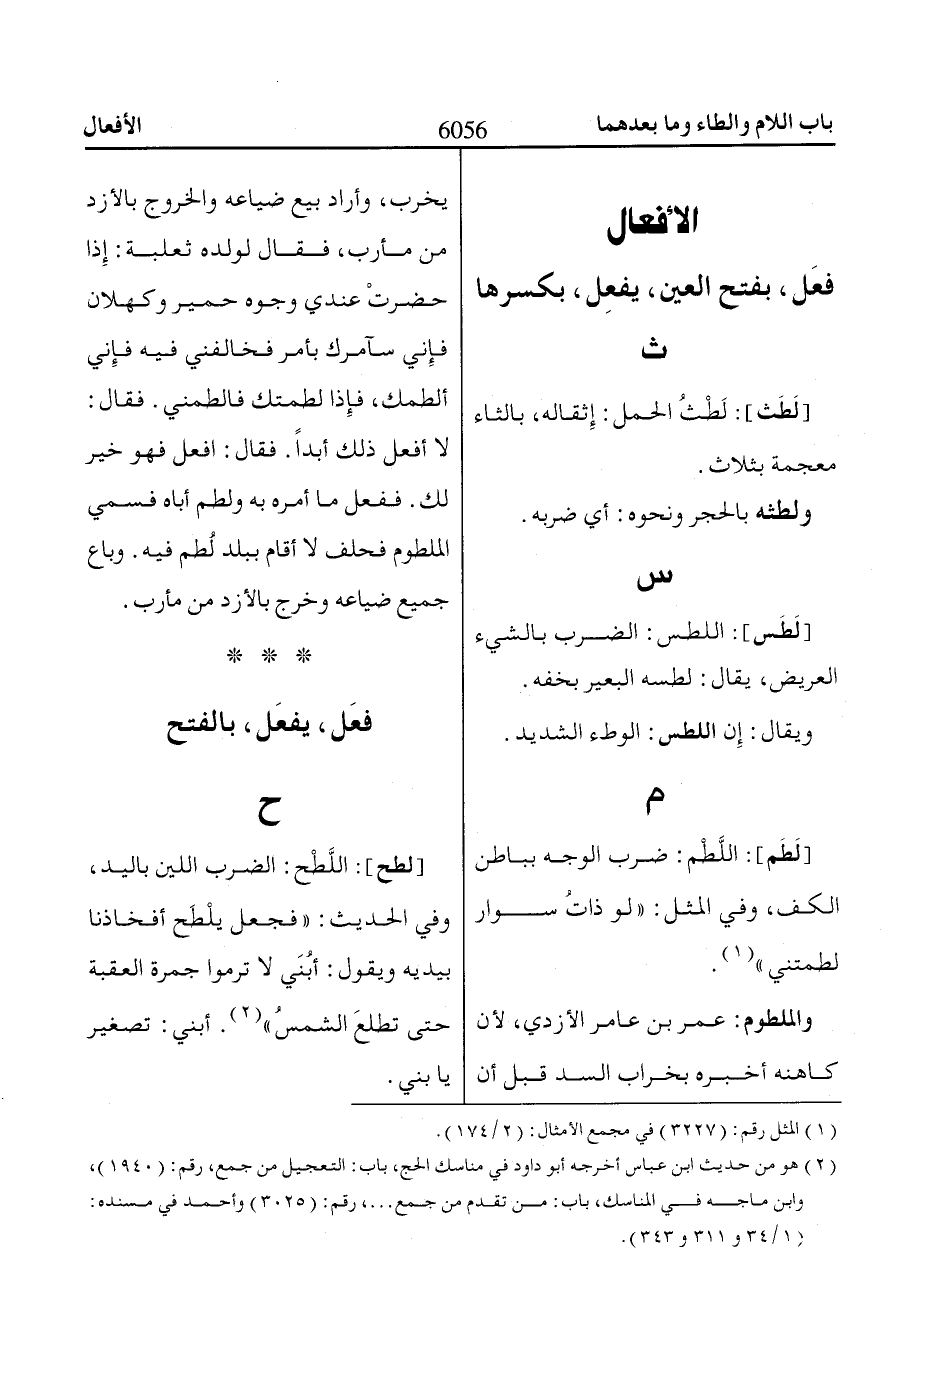 باب اللام والطاء وما بعدهما 6056 الأفعال
الأفعال
فعَل، بفتح العين، يفعِل، بكسرها
ث
[لَطَث]: لَطْثُ الحمل: إثقاله، بالثاء
معجمة بثلاث.
ولطثه بالحجر ونحوه: أي ضربه.
س
[لَطَس]: اللطس: الضرب بالشيء
العريض، يقال: لطسه البعير بخفه.
ويقال: إن اللطس: الوطء الشديد.
م
[لَطَم]: اللَّطْم: ضرب الوجه بباطن
الكف، وفي المثل: «لو ذاتُ سوار
لطمتني»(١).
والملطوم: عمر بن عامر الأزدي، لأن
كاهنه أخبره بخراب السد قبل أن
يخرب، وأراد بيع ضياعه والخروج بالأزد
من مأرب، فقال لولده ثعلبة: إذا
حضرتْ عندي وجوه حمير وكهلان
فإني سآمرك بأمر فخالفني فيه فإني
ألطمك، فإذا لطمتك فالطمني. فقال:
لا أفعل ذلك أبداً. فقال: افعل فهو خير
لك. ففعل ما أمره به ولطم أباه فسمي
الملطوم فحلف لا أقام ببلد لُطم فيه. وباع
جميع ضياعه وخرج بالأزد من مأرب.
* * *
فعَل، يفعَل، بالفتح
ح
[لطح]: اللَّطْح: الضرب اللين باليد،
وفي الحديث: «فجعل يلْطَح أفخاذنا
بيديه ويقول: أبُنَي لا ترموا جمرة العقبة
حتى تطلعَ الشمسُ»(٢). أبني: تصغير
يا بني.
(١) المثل رقم: (٣٢٢٧) في مجمع الأمثال: (١٧٤/٢).
(٢) هو من حديث ابن عباس أخرجه أبو داود في مناسك الحج، باب: التعجيل من جمع، رقم: (١٩٤٠)،
وابن ماجه في المناسك، باب: من تقدم من جمع...، رقم: (٣٠٢٥) وأحمد في مسنده:
(٣٤/١ و ٣١١ و ٣٤٣).